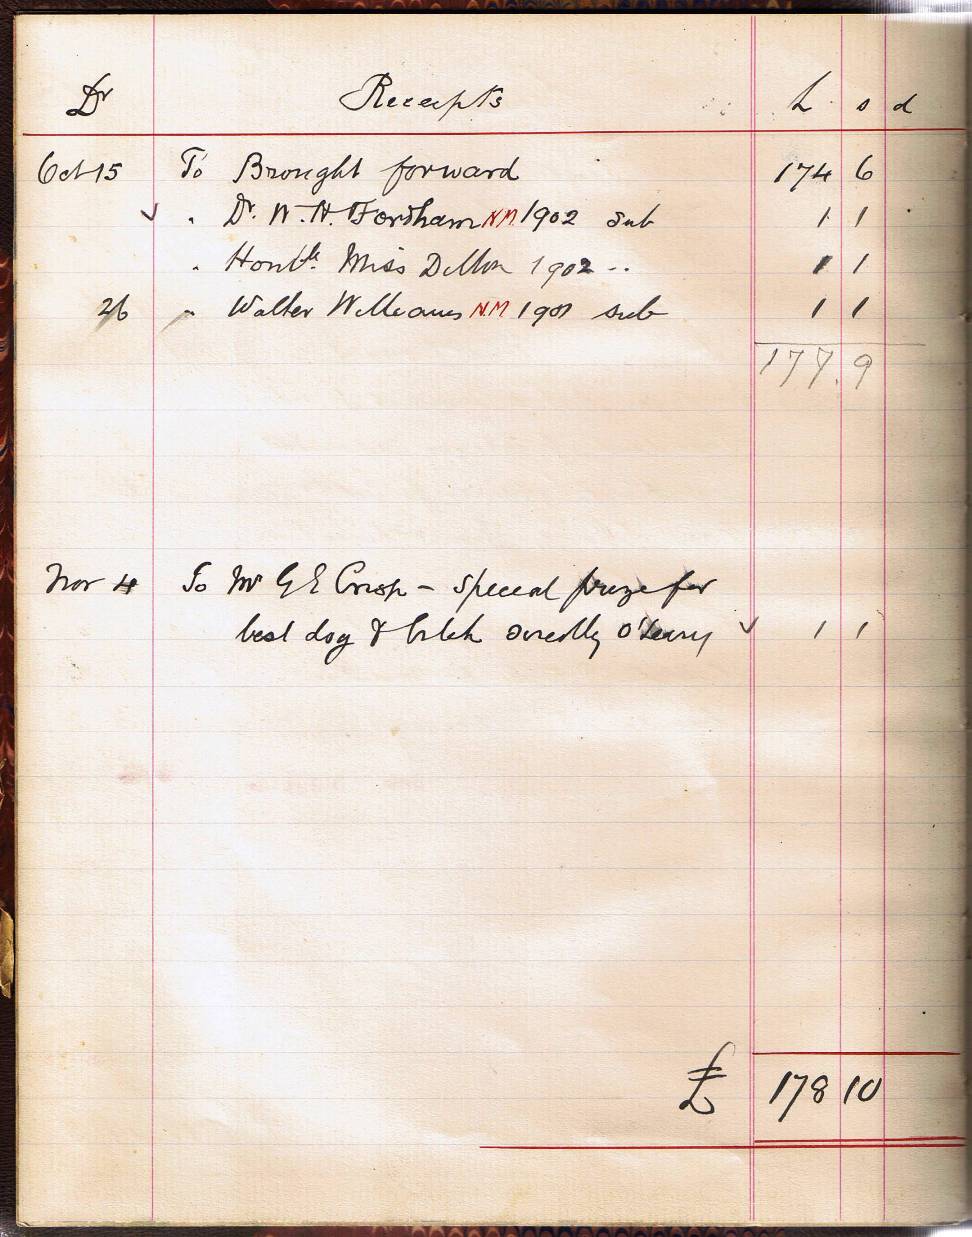 Dr Receipts £ s d
Oct 15 To Brought forward 174 6
✓ " Dr. W. H. Fordham NM 1902 sub 1 1
" Honble. Miss Dillon 1902 " 1 1
26 " Walter Williams NM 1901 sub 1 1
177. 9
Nov 4 To Mr G E Crisp – Special prize for
best dog & bitch O'Leary ✓ 1 1
£ 178 10